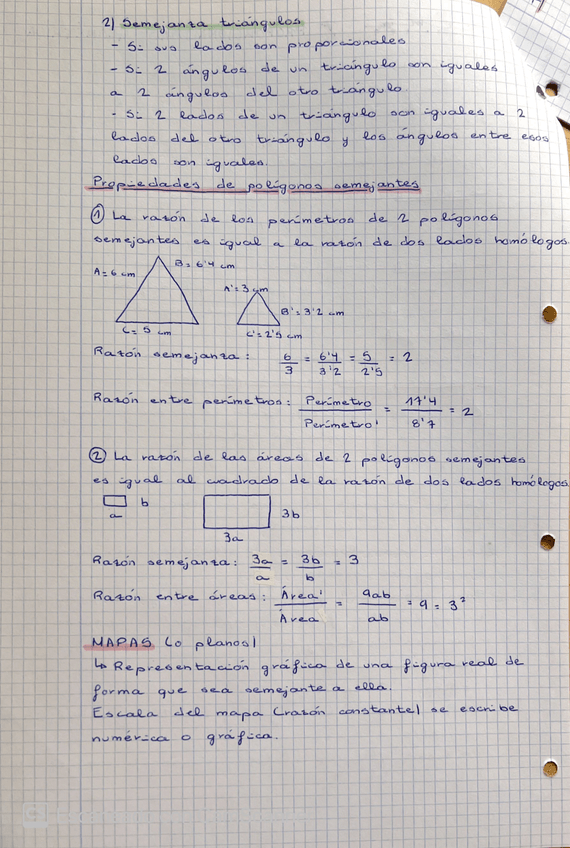 2) Semejanza triángulos
- Si sus lados son proporcionales
- Si 2 ángulos de un triángulo son iguales
a 2 ángulos del otro triángulo.
- Si 2 lados de un triángulo son iguales a 2
lados del otro triángulo y los ángulos entre esos
lados son iguales.
Propiedades de polígonos semejantes
① La razón de los perímetros de 2 polígonos
semejantes es igual a la razón de dos lados homólogos.
A = 6 cm B = 6'4 cm
A' = 3 cm B' = 3'2 cm
C = 5 cm C' = 2'5 cm
Razón semejanza: 6/3 = 6'4/3'2 = 5/2'5 = 2
Razón entre perímetros: Perímetro/Perímetro' = 17'4/8'7 = 2
② La razón de las áreas de 2 polígonos semejantes
es igual al cuadrado de la razón de dos lados homólogos.
b 3b
a 3a
Razón semejanza: 3a/a = 3b/b = 3
Razón entre áreas: Área'/Area = 9ab/ab = 9 = 3²
MAPAS (o planos)
↳ Representación gráfica de una figura real de
forma que sea semejante a ella.
Escala del mapa (razón constante) se escribe
numérica o gráfica.